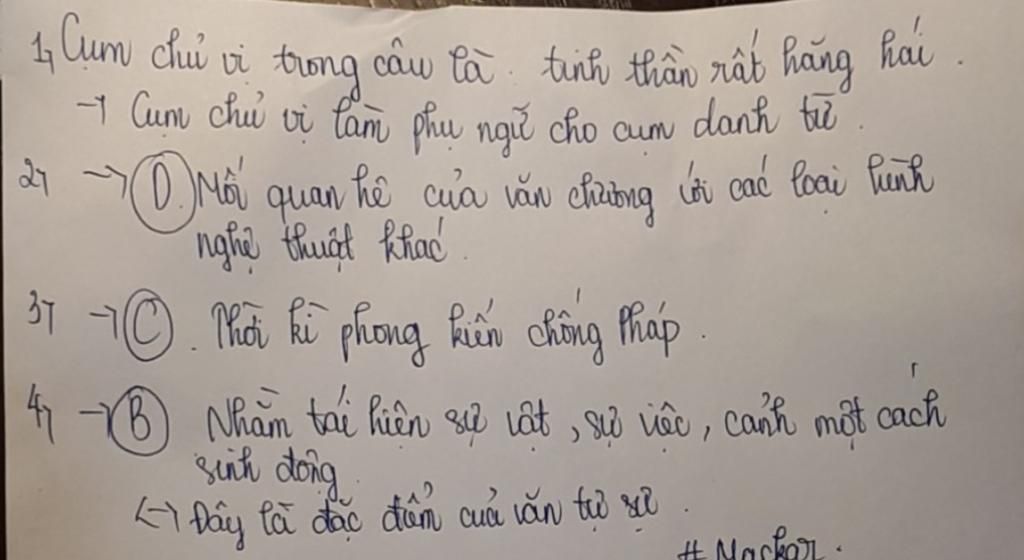 1, Cụm chủ vị trong câu là. tinh thần rất hăng hái.
→ Cụm chủ vị làm phụ ngữ cho cụm danh từ.
2, → D. Mối quan hê của văn chương với các loại hình
nghệ thuật khác.
3, → C. Thời kì phong kiến chống Pháp.
4, → B Nhằm tái hiện sự vật, sự việc, cảnh một cách
sinh động
<-> Đây là đặc điểm của văn tự sự.